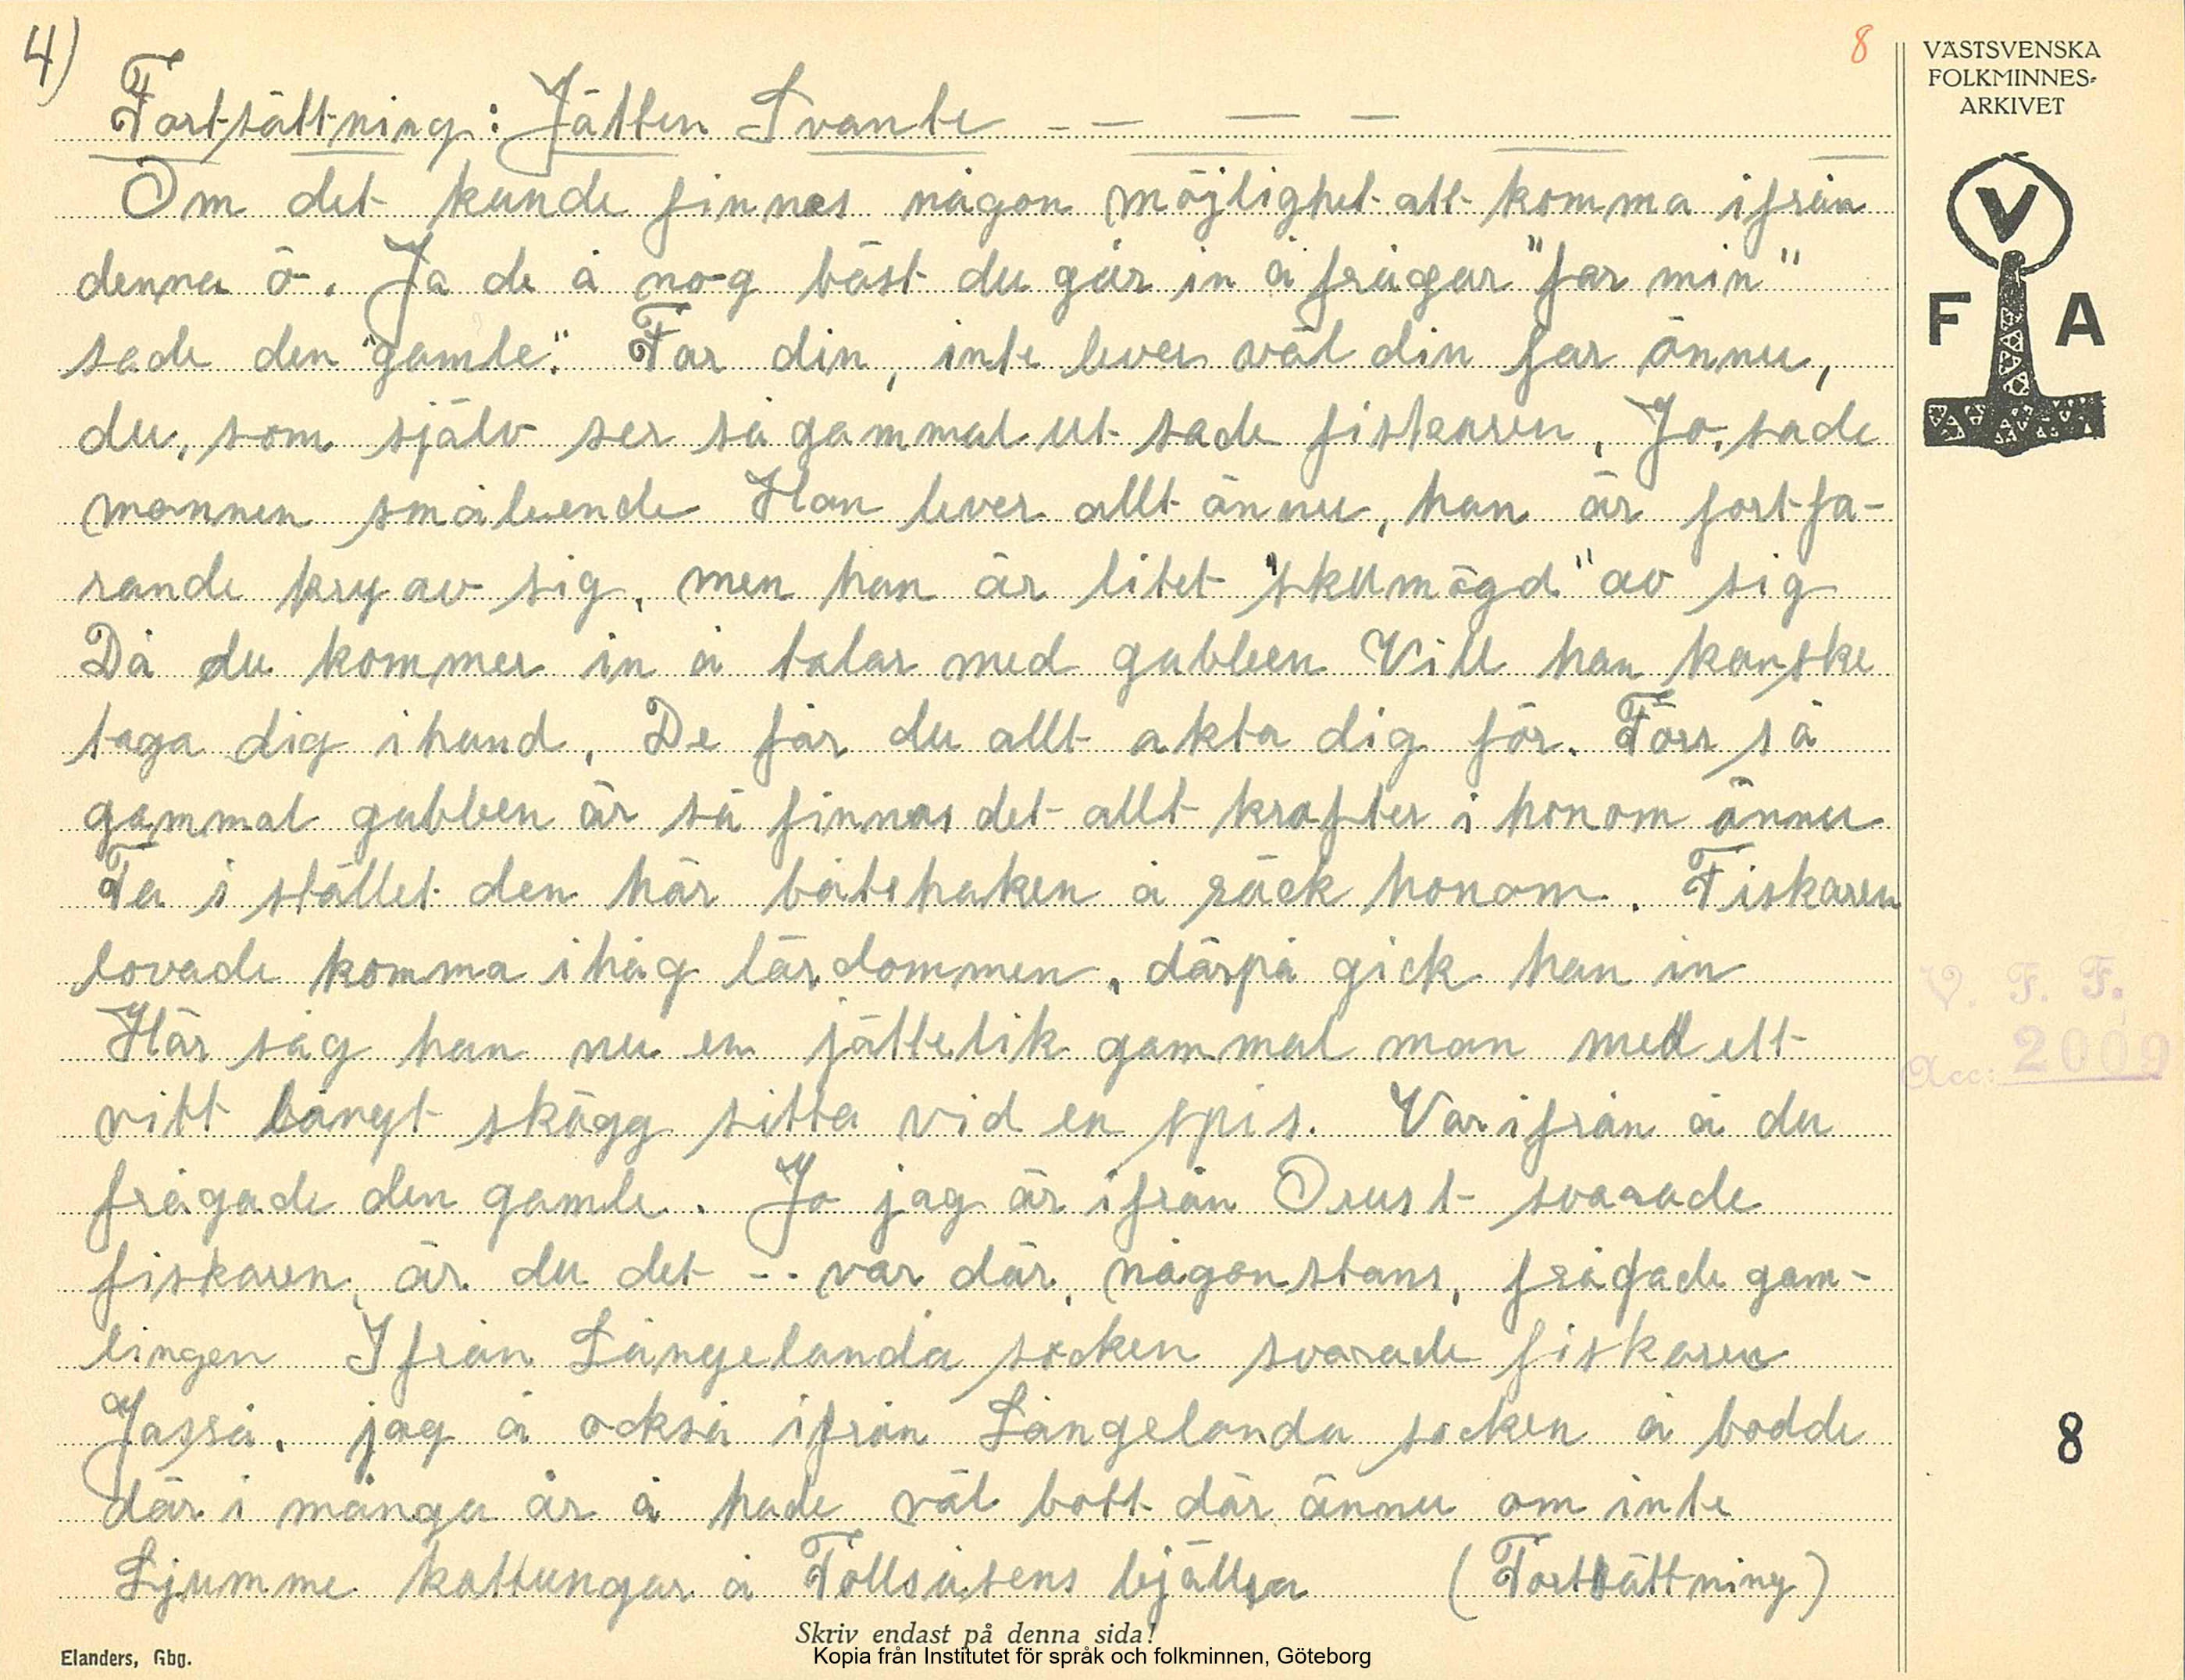 4)
8
Fortsättning: Jätten Svante -- — —
Om det kunde finnas någon möjlighet att komma ifrån
denna ö. Ja de ä nog bäst du går in å frågar "far min"
sade den "gamle". Far din, inte lever väl din far ännu,
du, som själv ser så gammal ut sade fiskaren, Jo, sade
mannen småleende Han lever allt ännu, han är fortfa-
rande kry av sig, men han är litet "skumögd" av sig
Då du kommer in å talar med gubben Vill han kanske
taga dig i hand, De får du allt akta dig för. Förr så
gammal gubben är så finnas det allt krafter i honom ännu
Ta i stället den här båtshaken å räck honom. Fiskaren
lovade komma ihåg lärdommen, därpå gick han in
Här såg han nu en jättelik gammal man med ett
vitt långt skägg sitta vid en spis. Varifrån ä du
frågade den gamle. Jo jag är ifrån Orust svarade
fiskaren, är du det -- var där, någonstans, frågade gam-
lingen Ifrån Långelanda socken svarade fiskaren
Jasså, jag ä också ifrån Långelanda socken å bodde
där i många år å hade väl bott där ännu om inte
Ljumme kattungar å Tollsåtens bjällra (Fortsättning)
VÄSTSVENSKA
FOLKMINNES-
ARKIVET
V
F A
V. F. F.
Acc: 2009
8
Skriv endast på denna sida!
Elanders, Gbg.
Kopia från Institutet för språk och folkminnen, Göteborg